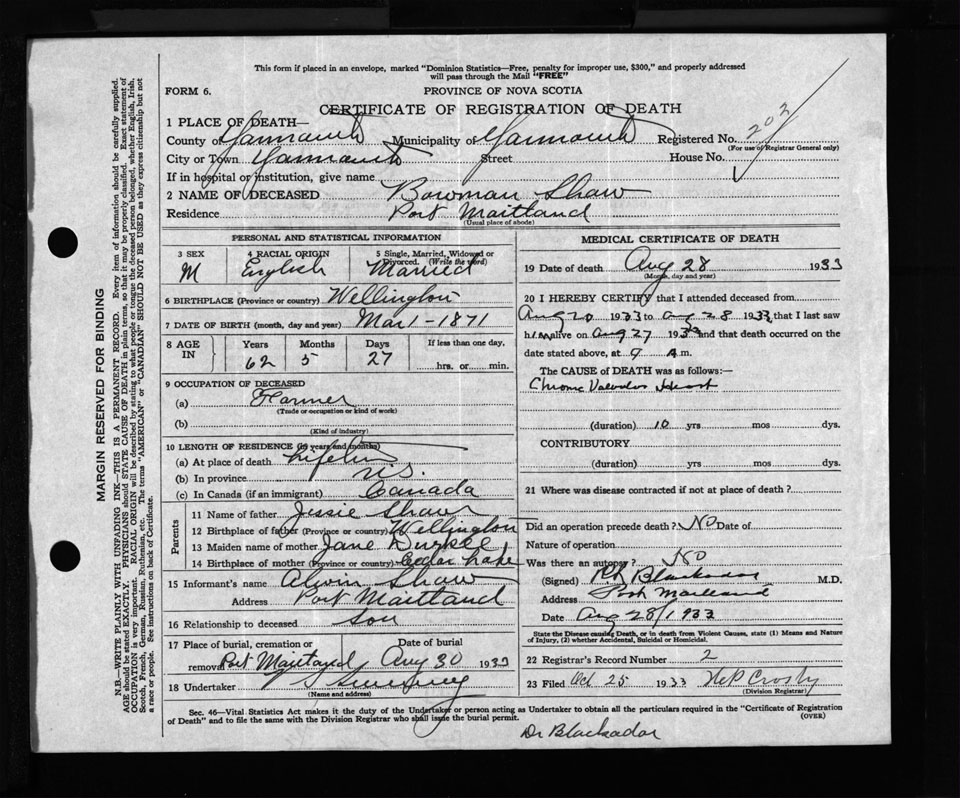 This form if placed in an envelope, marked "Dominion Statistics—Free, penalty for improper use, $300," and properly addressed
will pass through the Mail "FREE"
FORM 6.
PROVINCE OF NOVA SCOTIA
CERTIFICATE OF REGISTRATION OF DEATH
1 PLACE OF DEATH—
County of Yarmouth Municipality of Yarmouth Registered No. 203
(For use of Registrar General only)
City or Town Yarmouth Street House No.
If in hospital or institution, give name
2 NAME OF DECEASED Bowman Shaw
Residence Port Maitland
(Usual place of abode)
PERSONAL AND STATISTICAL INFORMATION
3 SEX 4 RACIAL ORIGIN 5 Single, Married, Widowed or Divorced. (Write the word)
M English Married
6 BIRTHPLACE (Province or country) Wellington
7 DATE OF BIRTH (month, day and year) Mar 1 - 1871
8 AGE IN Years Months Days If less than one day,
62 5 27 hrs. or min.
9 OCCUPATION OF DECEASED
(a) Farmer
(Trade or occupation or kind of work)
(b)
(Kind of industry)
10 LENGTH OF RESIDENCE (in years and months)
(a) At place of death lifetime
(b) In province N.S.
(c) In Canada (if an immigrant) Canada
Parents
11 Name of father Jessie Shaw
12 Birthplace of father (Province or country) Wellington
13 Maiden name of mother Jane Durkee
14 Birthplace of mother (Province or country) Cedar Lake
15 Informant's name Alvin Shaw
Address Port Maitland
16 Relationship to deceased son
17 Place of burial, cremation or removal Port Maitland Date of burial Aug 30 1933
18 Undertaker
(Name and address)
MEDICAL CERTIFICATE OF DEATH
19 Date of death Aug 28 1933
(Month, day and year)
20 I HEREBY CERTIFY that I attended deceased from
Aug 20 1933 to Aug 28 1933, that I last saw
him alive on Aug 27 1933 and that death occurred on the
date stated above, at 9 A.m.
The CAUSE of DEATH was as follows:—
Chronic Valvular Heart
(duration) 10 yrs mos dys.
CONTRIBUTORY
(duration) yrs mos dys.
21 Where was disease contracted if not at place of death?
Did an operation precede death? No Date of
Nature of operation
Was there an autopsy? No
(Signed) Blackadar M.D.
Address Port Maitland
Date Aug 28/1933
State the Disease causing Death, or in death from Violent Causes, state (1) Means and Nature
of Injury, (2) whether Accidental, Suicidal or Homicidal.
22 Registrar's Record Number 2
23 Filed Oct 25 1933 Crosby
(Division Registrar)
Sec. 46—Vital Statistics Act makes it the duty of the Undertaker or person acting as Undertaker to obtain all the particulars required in the "Certificate of Registration
of Death" and to file the same with the Division Registrar who shall issue the burial permit.
(OVER)
Dr Blackadar
MARGIN RESERVED FOR BINDING
N.B.—WRITE PLAINLY WITH UNFADING INK—THIS IS A PERMANENT RECORD. Every item of information should be carefully supplied.
AGE should be stated EXACTLY. PHYSICIANS should STATE CAUSE OF DEATH in plain terms, so that it may be properly classified. Exact statement of
OCCUPATION is very important. RACIAL ORIGIN will be described by stating to what people or tongue the deceased person belonged, whether English, Irish,
Scotch, French, German, Russian, Ruthenian, etc. The terms "AMERICAN" or "CANADIAN" SHOULD NOT BE USED as they express citizenship but not
a race or people. See instructions on back of Certificate.